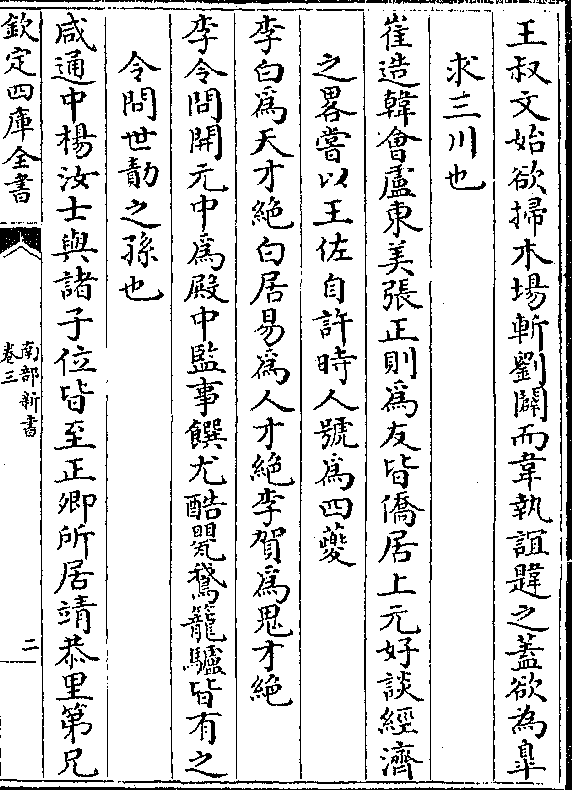 王叔文始欲掃木場斬劉闢而韋執誼違之蓋欲為臯
求三川也
崔造韓會盧東美張正則爲友皆僑居上元好談經濟
之畧嘗以王佐自許時人號爲四夔
李白爲天才絶白居易爲人才絶李賀爲鬼才絶
李令問開元中爲殿中監事饌尤酷甖鵞籠驢皆有之
令問世勣之孫也
咸通中楊汝士與諸子位皆至正卿所居靖恭里第兄
欽定四庫全書
南部新書
卷三
二